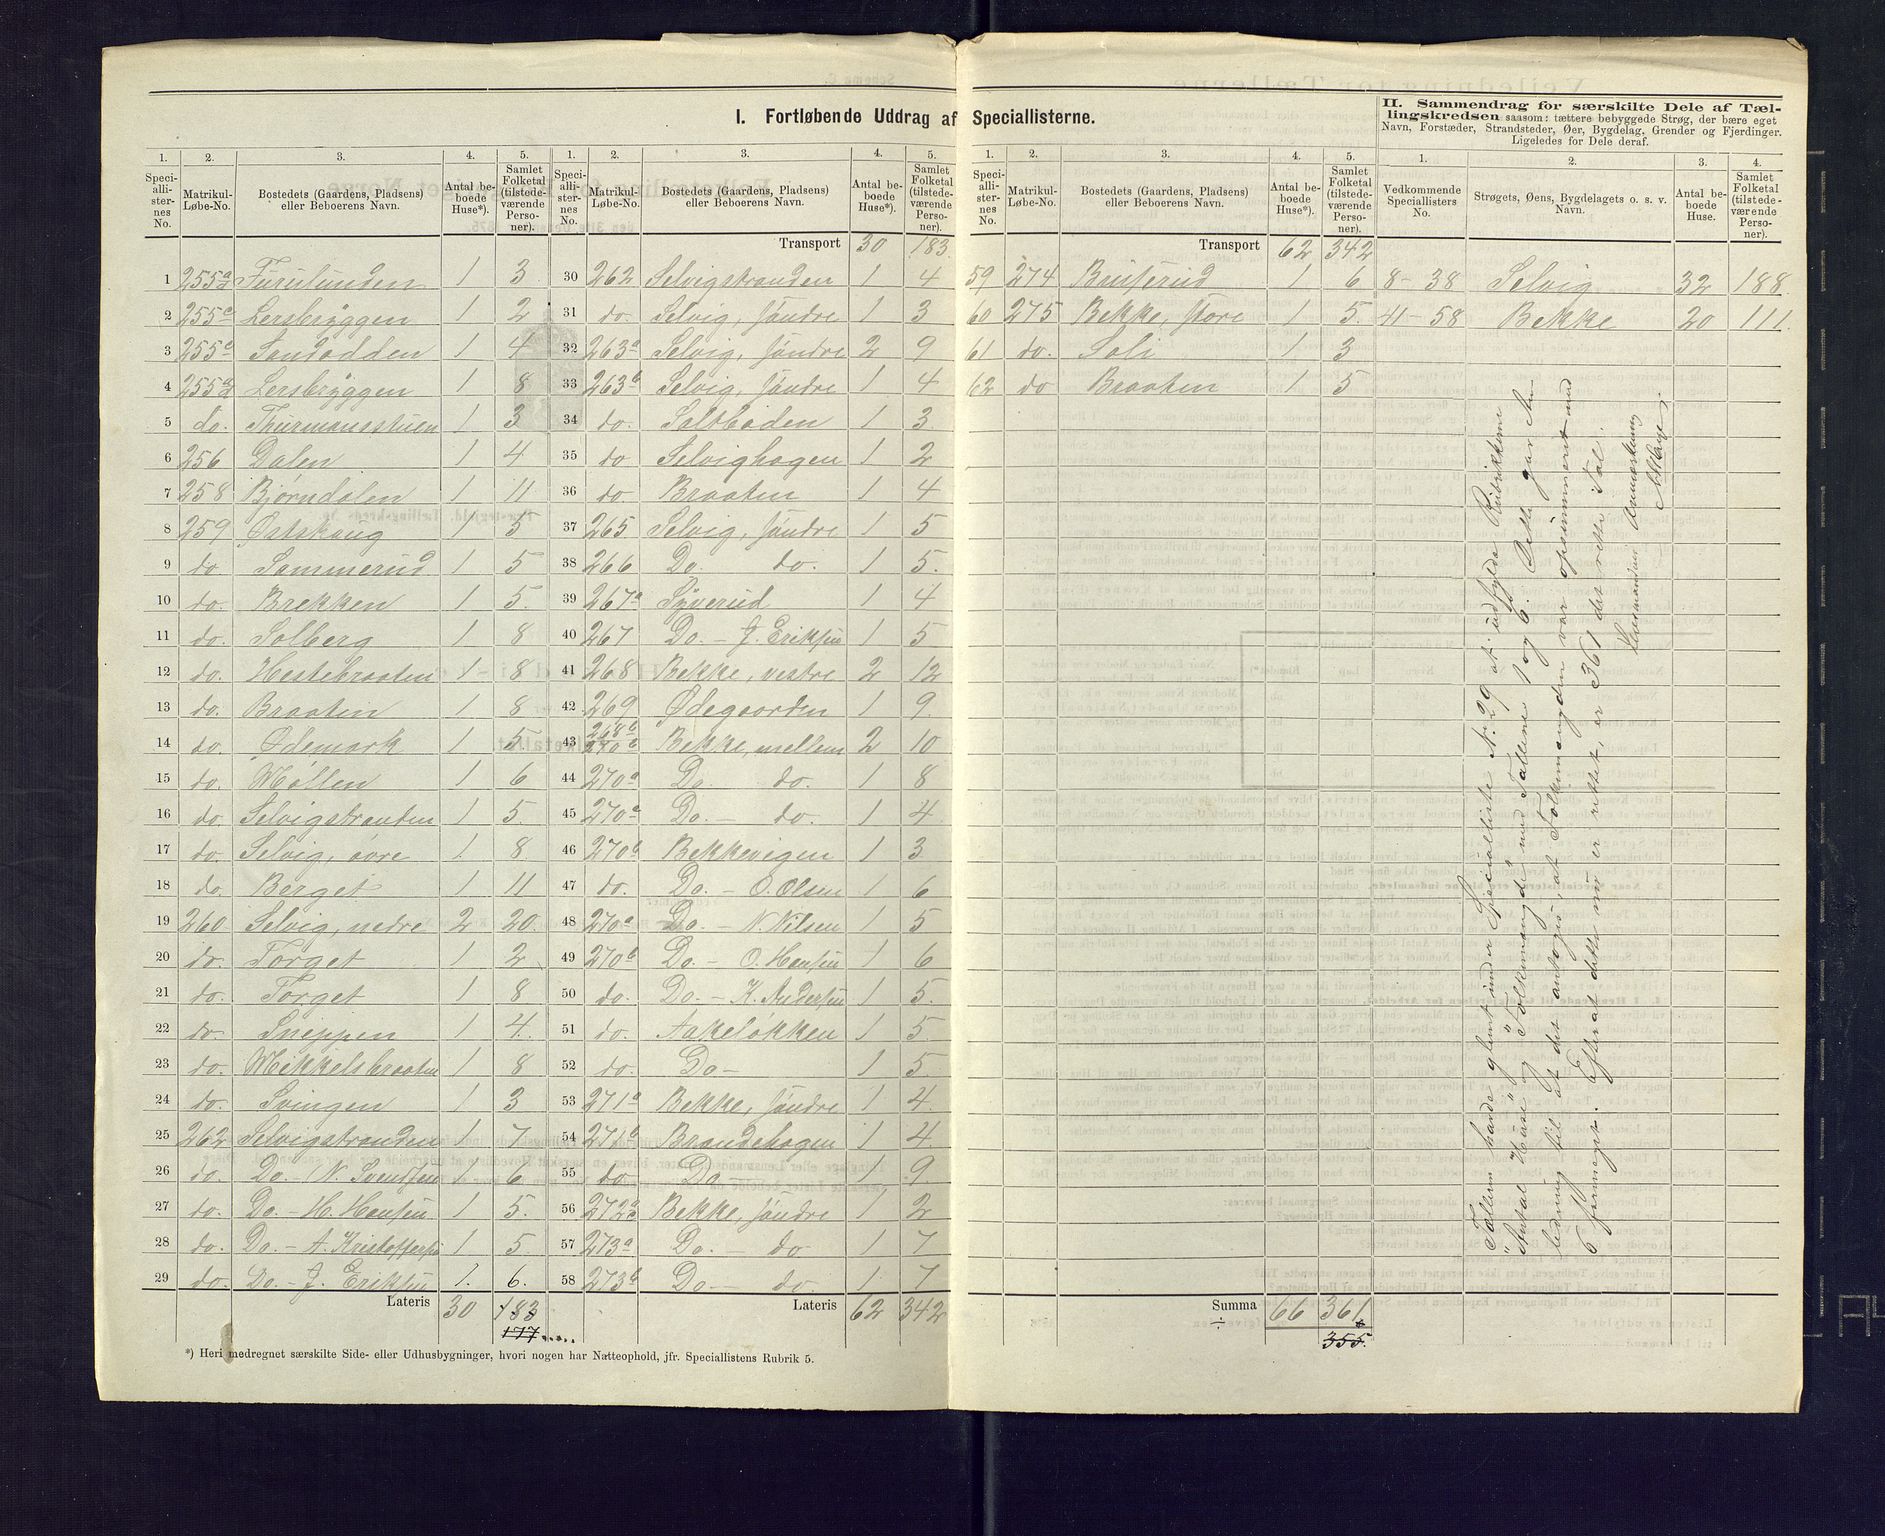 I. Fortløbende Uddrag af Speciallisterne.
II. Sammendrag for særskilte Dele af Tæl-
lingskredsen saasom: tættere bebyggede Strøg, der bære eget
Navn, Forstæder, Strandsteder, Øer, Bygdelag, Grender og Fjerdinger.
Ligeledes for Dele deraf.
1. 2. 3. 4. 5.
Speciallisternes No. Matrikul-Løbe-No. Bostedets (Gaardens, Pladsens) eller Beboerens Navn. Antal beboede Huse*). Samlet Folketal (tilstedeværende Personer).
1 255a Furulunden 1 3
2 255c Lersbryggen 1 2
3 255c Sandodden 1 4
4 255d Lersbryggen 1 8
5 do. Thurmansstuen 1 3
6 256 Dalen 1 4
7 258 Bjørndalen 1 11
8 259 Østskaug 1 5
9 do Sammerud 1 5
10 do. Brekken 1 5.
11 do. Solberg 1 8
12 do. Hestebraaten 1 8
13 do. Braaten 1 8
14 do. Ødemark 1 5
15 do. Møllen 1 6
16 do. Selvigstranden 1 5.
17 do. Selvig, øvre 1. 8
18 do. Berget 1 11
19 260 Selvig, nedre 2 20.
20 do. Torget 1 2
21 do. Torget 1 8
22 do. Sneppen 1 4.
23 do. Mikkelsbraaten 1 8
24 do. Svingen 1 3
25 262 Selvigstranden 1 7.
26 do. Do. - N. Svendsen 1. 6
27 do. Do. - H. Hansen 1 5.
28 do. Do. - A. Kristoffersen 1. 5.
29 do. Do. - J. Eriksen 1. 6.
Lateris 30 183
177
*) Heri medregnet særskilte Side- eller Udhusbygninger, hvori nogen har Natteophold, jfr. Speciallistens Rubrik 5.
1. 2. 3. 4. 5.
Speciallisternes No. Matrikul-Løbe-No. Bostedets (Gaardens, Pladsens) eller Beboerens Navn. Antal beboede Huse*). Samlet Folketal (tilstedeværende Personer).
Transport 30 183.
30 262 Selvigstranden 1 4
31 do. Selvig, søndre 1 3
32 263a Selvig, søndre 2 9
33 263b Selvig, søndre 1 4
34 do. Saltboden 1 3
35 do Selvighagen 1 2
36 do. Braaten 1 4
37 265 Selvig, søndre 1 5
38 266 Do. do. 1 5.
39 267a Syverud 1 4
40 267 Do. - J. Eriksen 1 5
41 268 Bekke, vestre 2 12
42 269 Ødegaarden 1 9.
43 268b 270b Bekke, mellem 2 10
44 270a Do. do. 1 8
45 270a Do. - do. 1 4.
46 270b Bekkevigen 1 3
47 do. Do. - O. Olsen 1 6
48 270a Do. - N. Nilsen 1 5
49 270b Do. - O. Hansen 1 6
50 do. Do. - K. Andersen 1 5.
51 do. Aakeløkken 1 5.
52 do. Do - 1 5.
53 271a Bekke, søndre 1 4.
54 271b Brandehagen 1 4.
55 do Do 1 9.
56 272a Bekke, søndre 1 2
57 273a Do. - do 1 7
58 273b Do. - do. 1. 7
Lateris 62 342
1. 2. 3. 4. 5.
Speciallisternes No. Matrikul-Løbe-No. Bostedets (Gaardens, Pladsens) eller Beboerens Navn. Antal beboede Huse*). Samlet Folketal (tilstedeværende Personer).
Transport 62 342
59 274 Bruserud 1 6
60 275 Bekke, store 1 5.
61 do. Soli 1 3
62 do Braaten 1 5
Summa 66 361
÷ 355.
1. 2. 3. 4.
Vedkommende Speciallisters No. Strøgets, Øens, Bygdelagets o. s. v. Navn. Antal beboede Huse. Samlet Folketal (tilstedeværende Personer).
8-38 Selvig 32 188
41-58 Bekke 20 111.
Tælleren havde glemt under Specialliste No 29 at udfylde Rubrikkerne
"Antal Huse" og "Folkemængde" med Tallene 1 og 6. Dette gav An-
ledning til at det antoges, at Folkemængden var opsummeret med
6 formeget. Efterat dette nu er rettet, er 361 det rette Tal.
Lensmandens Anmærkning